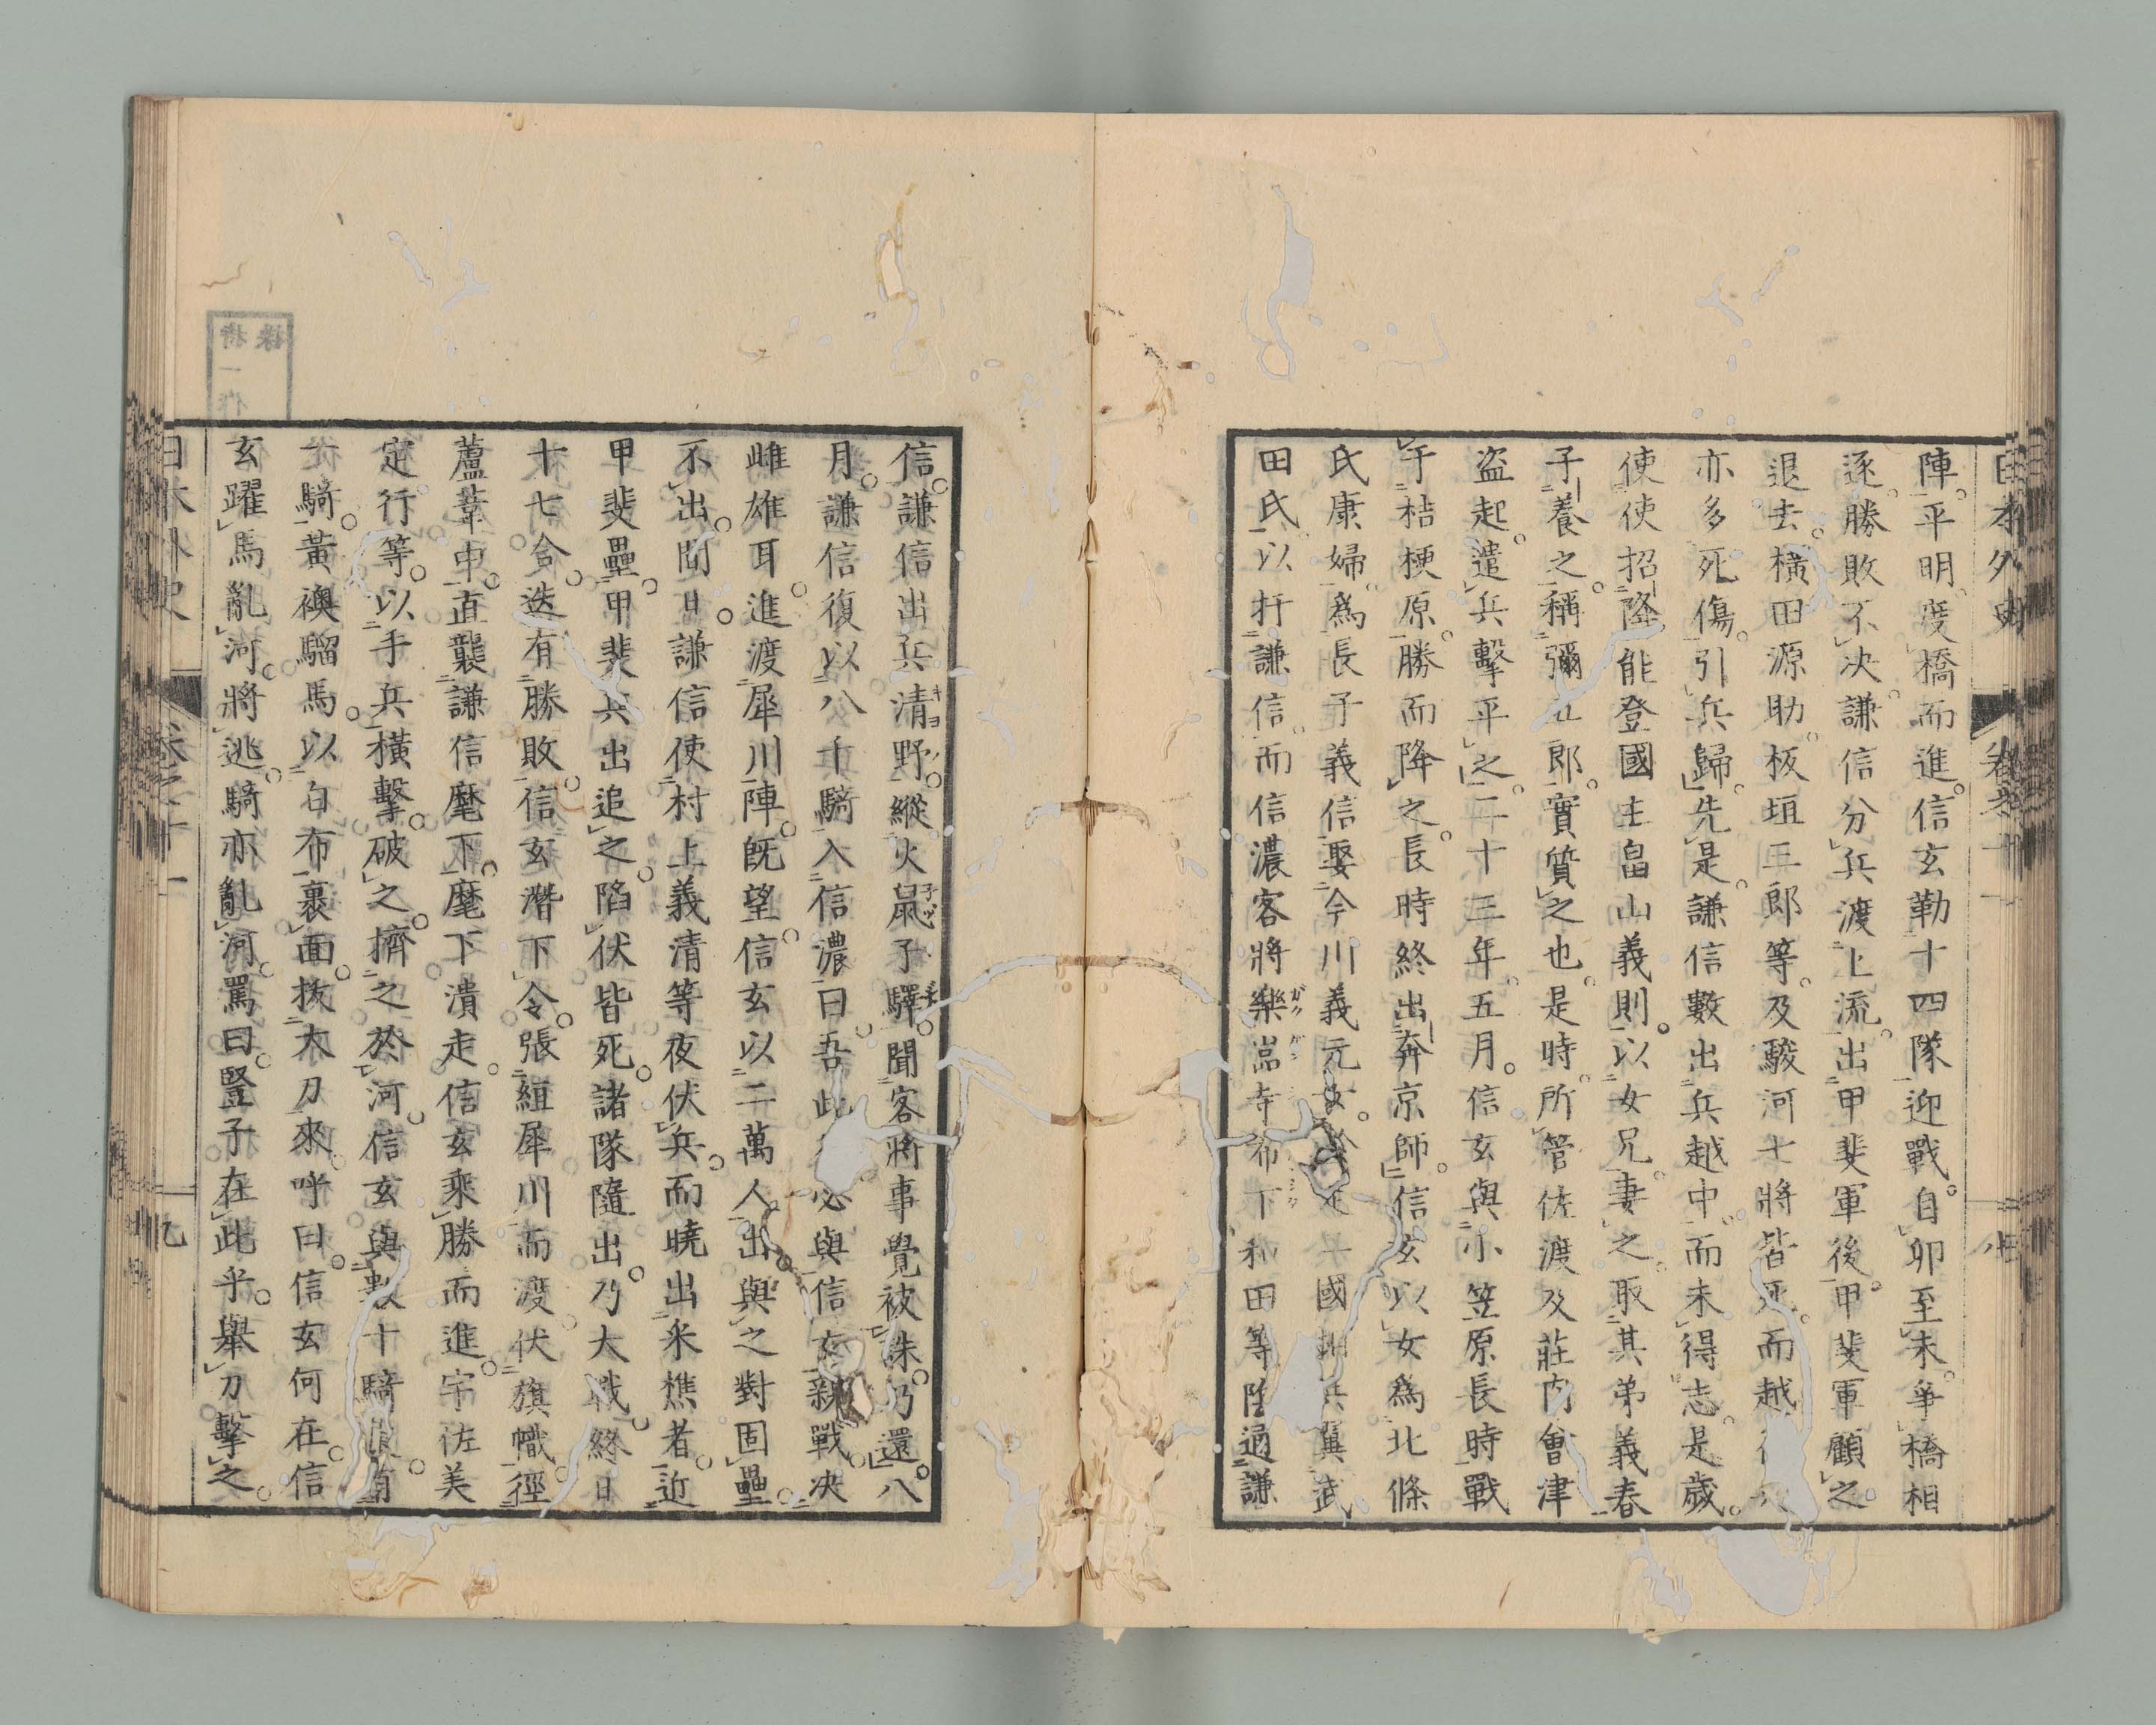 日本外史
卷之十一
八
陣平明度橋而進信玄勒十四隊迎戰自卯至未爭橋相
逐勝敗不决謙信分兵渡上流出甲斐軍後甲斐軍顧之
退去橫田源助板垣三郎等及駿河士將皆死而越
亦多死傷引兵歸先是謙信數出兵越中而未得志是歲
使使招降能登國主畠山義則以女兄妻之取其弟義春
子養之稱彌五郎實質之也是時所管佐渡及莊內會津
盜起遣兵擊平之二十三年五月信玄與小笠原長時戰
于桔梗原勝而降之長時終出奔京師信玄以女爲北條
氏康婦爲長子義信娶今川義元女 國 兵冀武
田氏以扞謙信而信濃客將樂嵓寺布下和田等陰通謙
信謙信出兵清野縱火鼠子驛聞客將事覺被誅乃還八
月謙信復以八千騎入信濃曰吾此 必與信玄親戰决
雌雄耳進渡犀川陣既望信玄以二萬人出與之對固壘
不出間日謙信使村上義清等夜伏兵而曉出釆樵者近
甲斐壘甲斐兵出追之陷伏皆死諸隊隨出乃大戰終日
十七合迭有勝敗信玄潛下令張絙犀川而渡伏旗幟徑
蘆葦中直襲謙信麾下麾下潰走信玄乘勝而進宇佐美
定行等以手兵橫擊破之擠之於河信玄與數十騎 有
一騎黃襖騮馬以白布裹面拔大刀來呼曰信玄何在信
玄躍馬亂河將逃騎亦亂河罵曰豎子在此乎舉刀擊之
日本外史
卷之十一
九